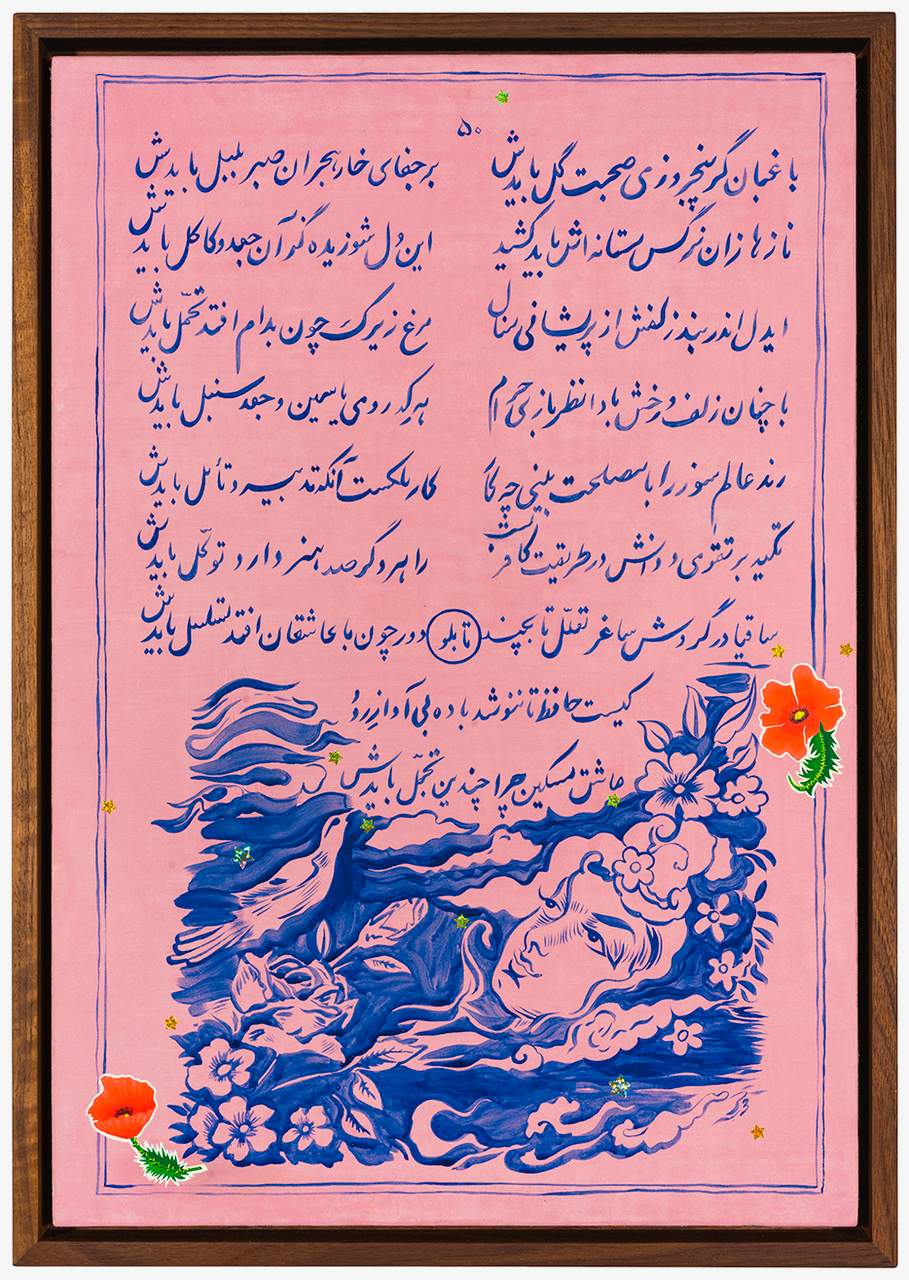 ۵۰
باغبان گر پنجروزی صحبت گل بایدش بر جفای خار هجران صبر بلبل بایدش
نازها زان نرگس مستانه اش باید کشید این دل شوریده گر آن جعد و کاکل بایدش
ایدل اندر بند زلفش از پریشانی منال مرغ زیرک چون بدام افتد تحمّل بایدش
با چنان زلف و رخش بادا نظر بازی حرام هر که روی یاسمین و جعد سنبل بایدش
رند عالم سوز را با مصلحت بینی چه کار کار ملکست آنکه تدبیر و تأمل بایدش
تکیه بر تقوی و دانش در طریقت کافریست راهرو گر صد هنر دارد توکّل بایدش
ساقیا در گردش ساغر تعلّل تا بچند تابلو دور چون با عاشقان افتد تسلسل بایدش
کیست حافظ تا ننوشد باده بی آواز رود
عاشق مسکین چرا چندین تجمّل بایدش